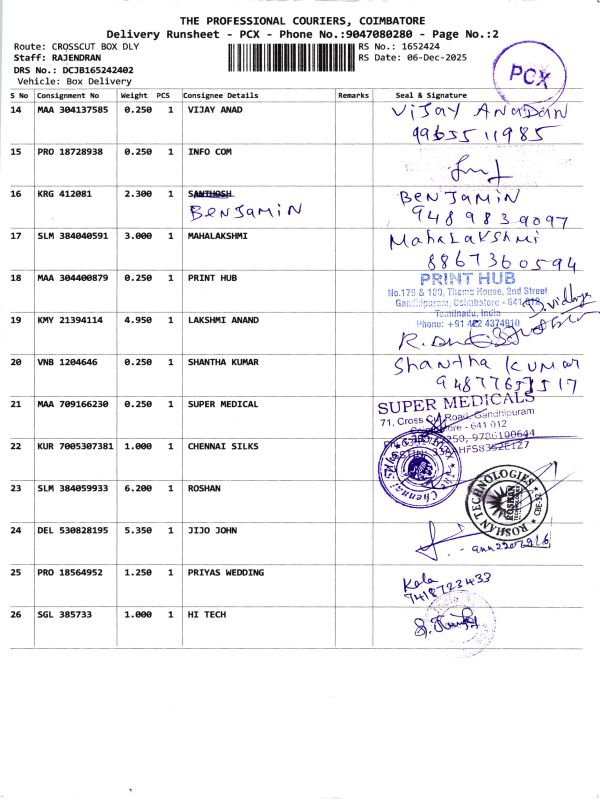 THE PROFESSIONAL COURIERS, COIMBATORE
Delivery Runsheet - PCX - Phone No.:9047080280 - Page No.:2
Route: CROSSCUT BOX DLY
Staff: RAJENDRAN
DRS No.: DCJB165242402
Vehicle: Box Delivery
RS No.: 1652424
RS Date: 06-Dec-2025
PCX
S No Consignment No Weight PCS Consignee Details Remarks Seal & Signature
14 MAA 304137585 0.250 1 VIJAY ANAD ViJAY ANADAN
9965511985
15 PRO 18728938 0.250 1 INFO COM
16 KRG 412081 2.300 1 SANTHOSH BENJAMIN
BENJAMIN 9489839097
17 SLM 384040591 3.000 1 MAHALAKSHMI MahaLakshmi
8867360594
18 MAA 304400879 0.250 1 PRINT HUB PRINT HUB
No.179 & 180, Thoms House, 2nd Street
Gandhipuram, Coimbatore - 641 012
Tamilnadu, India
Phone: +91 422 4374910
19 KMY 21394114 4.950 1 LAKSHMI ANAND
20 VNB 1204646 0.250 1 SHANTHA KUMAR Shantha Kumar
21 MAA 709166230 0.250 1 SUPER MEDICAL SUPER MEDICALS
71, Cross Cut Road, Gandhipuram
Coimbatore - 641 012
22 KUR 7005307381 1.000 1 CHENNAI SILKS
23 SLM 384059933 6.200 1 ROSHAN ROSHAN TECHNOLOGIES
CBE-12
24 DEL 530828195 5.350 1 JIJO JOHN
25 PRO 18564952 1.250 1 PRIYAS WEDDING Kala
7418723433
26 SGL 385733 1.000 1 HI TECH